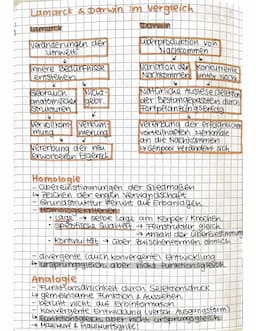 Lamarck & Darwin im Vergleich
Lamarck
Darwin
Veränderungen der Umwelt
innere Bedürfnisse entstehen
Gebrauch anatomischer Strukturen
Nicht-gebr.
Vervollkommnung
Verkümmerung
Vererbung der neu erworbenen Eigensch.
Überproduktion von Nachkommen
Variation der Nachkommen
Konkurrenz
Natürliche Auslese/Selektion
der Bestangepassten durch
Fortpflanzungserfolg
Vererbung der erfolgreichen
vorteilhaften Merkmale
an die Nachkommen
↳ Genpool verändert sich
Homologie
- Übereinstimmungen der Gliedmaßen
↳ Zeichen der engen Verwandtschaft
- Grundstruktur beruht auf Erbanlagen
- Homologiekriterien:
• Lage → selbe Lage am Körper / Knochen
• spezifische Qualität → Feinstruktur gleich
→ Merkmale der Übereinstimmung
• Kontinuität → über Zwischenformen ähnlich
- divergente (auch konvergente) Entwicklung
↳ ursprungsgleich, aber nicht funktionsgleich
Analogie
- Funktionsähnlichkeit durch Selektionsdruck
↳ gemeinsame Funktion & Aussehen
- beruht nicht auf Erbinformation
- konvergente Entwicklung (versch. Ausgangsform)
↳ funktionsgleich, aber nicht ursprungsgleich
→ Maulwurf & Maulwurfsgrille!